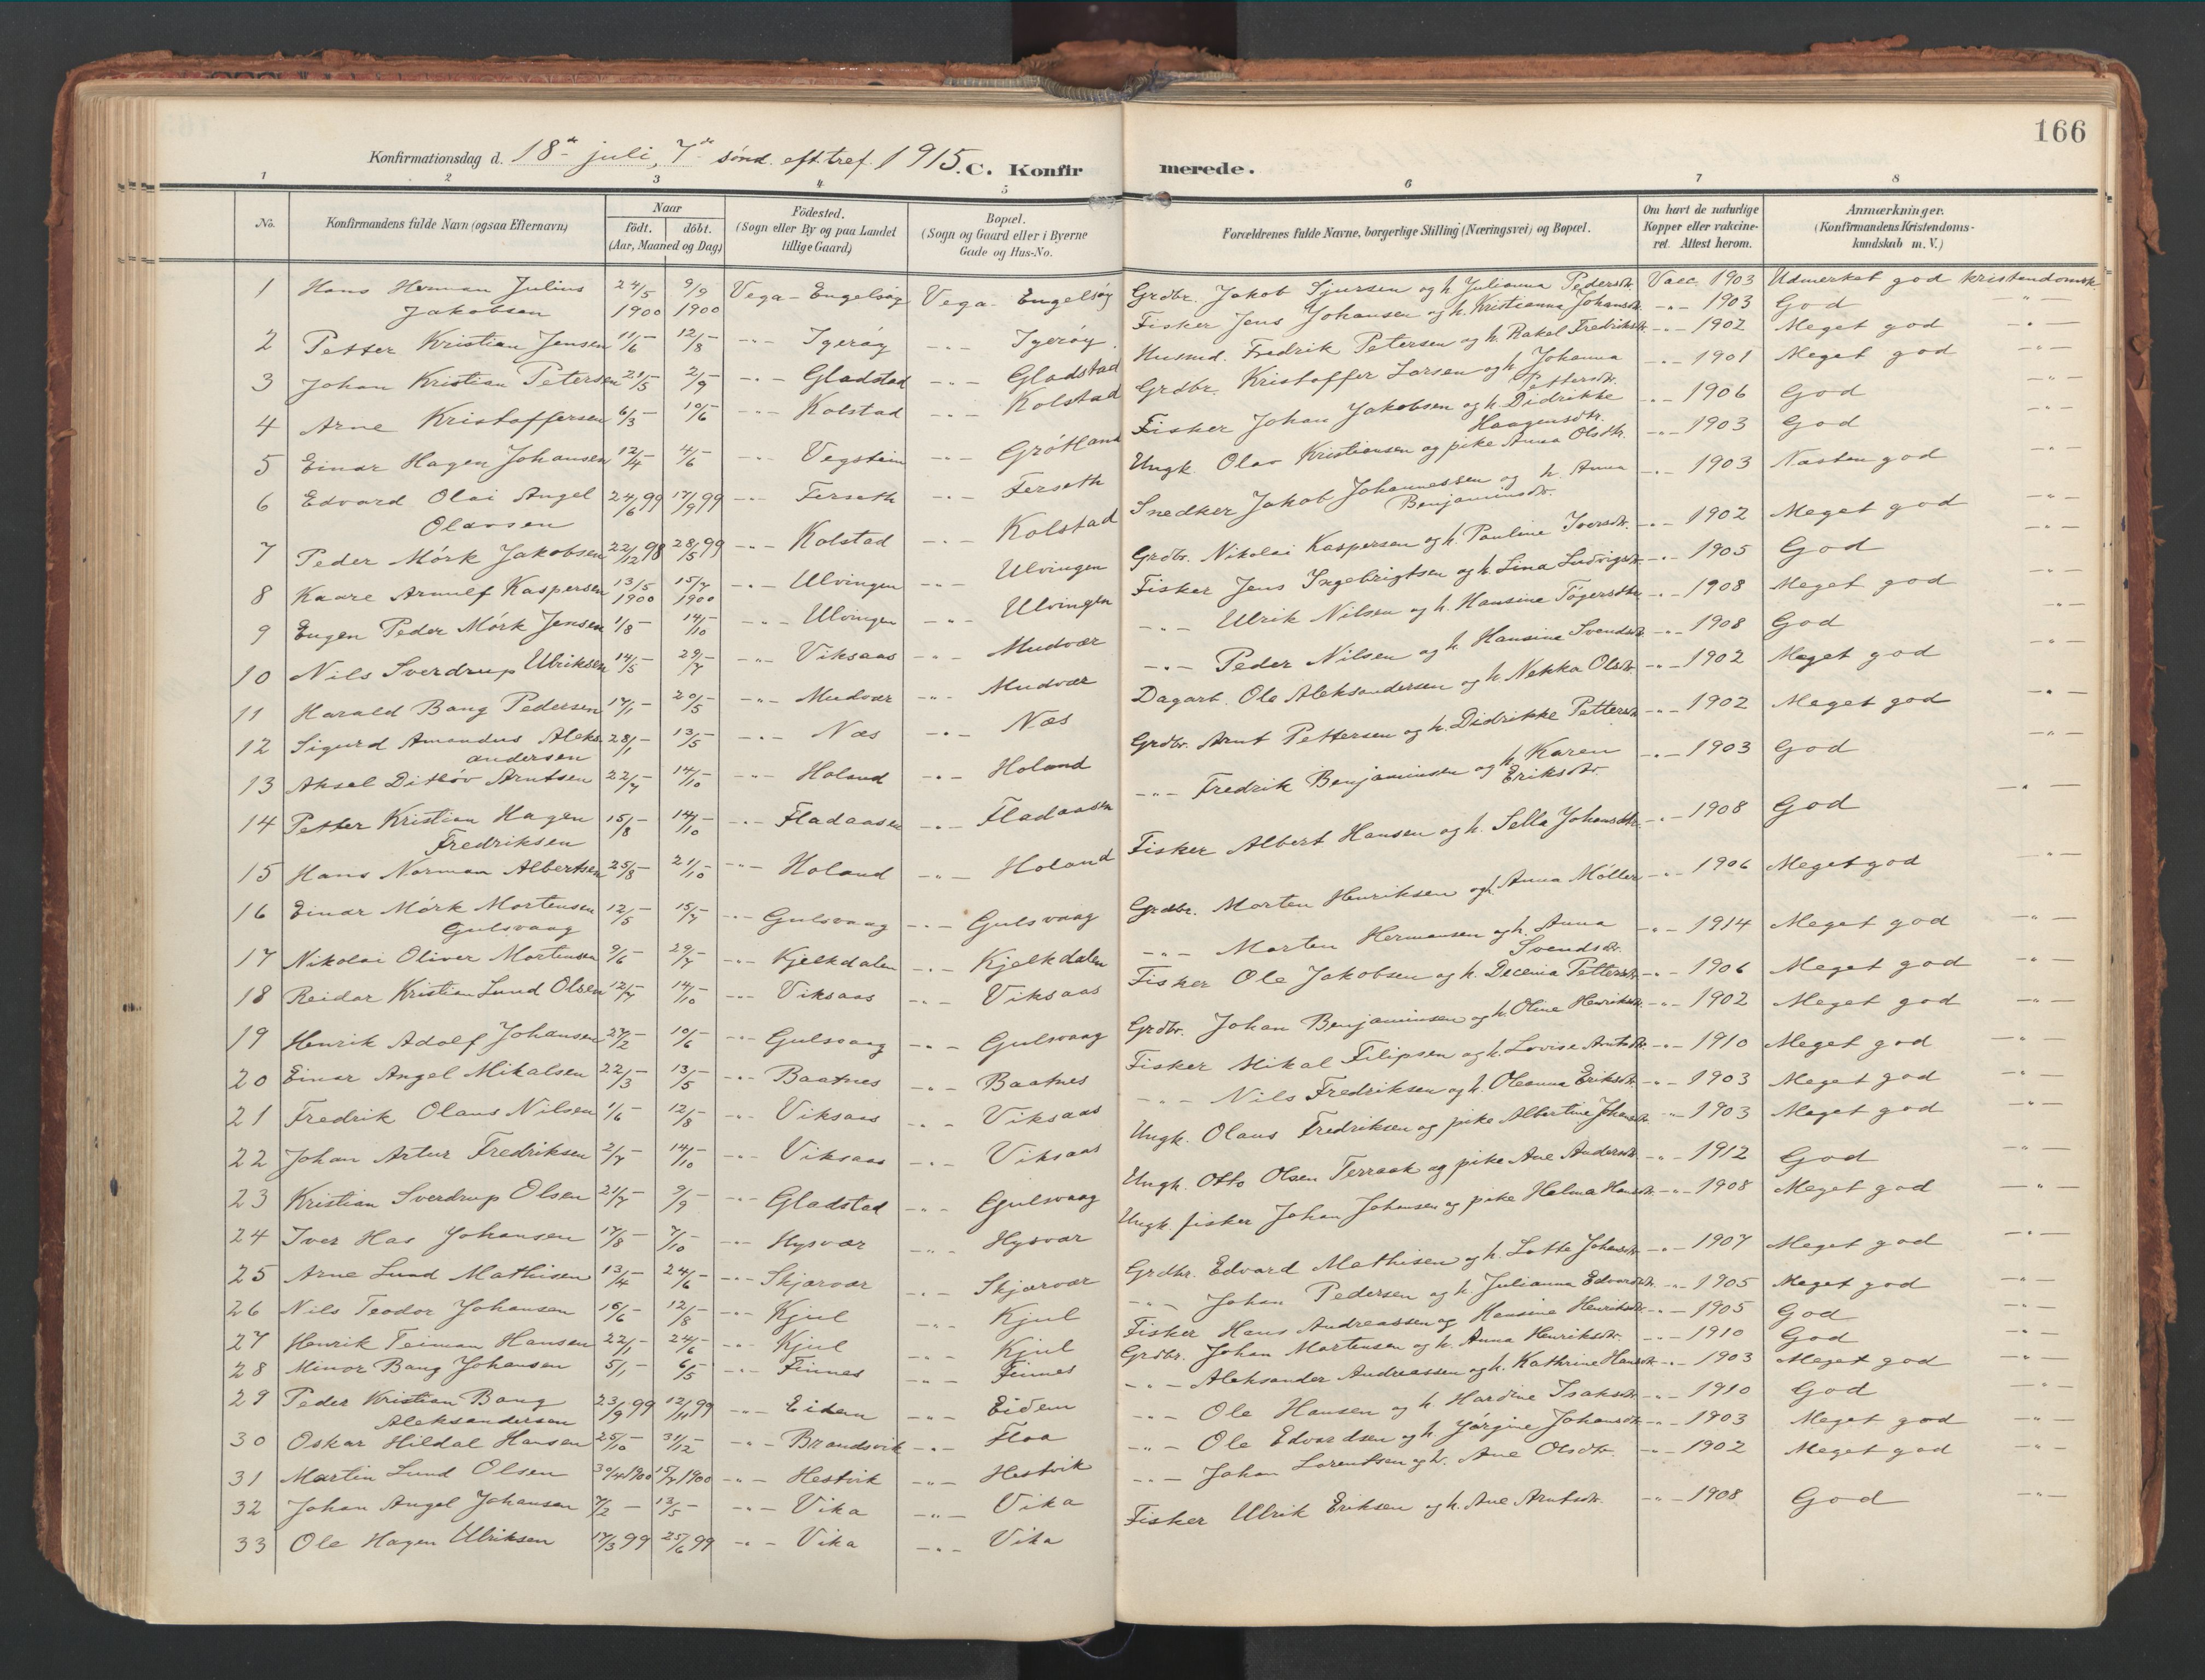 166
Konfirmationsdag d. 18de juli, 7de sønd. eft. tref. 1915. C. Konfirmerede.
1 2 3 4 5 6 7 8
No. Konfirmandens fulde Navn (ogsaa Efternavn) Naar født. døbt. (Aar, Maaned og Dag) Födested. (Sogn eller By og paa Landet tillige Gaard) Bopæl. (Sogn og Gaard eller i Byerne Gade og Hus-No. Forældrenes fulde Navne, borgerlige Stilling (Næringsvei) og Bopæl. Om havt de naturlige Kopper eller vakcineret. Attest herom. Anmærkninger. (Konfirmandens Kristendomskundskab m. V.)
1 Hans Herman Julius Jakobsen 24/5 1900 9/9 1900 Vega - Engelsöy Vega - Engelsöy Grdbr. Jakob Sjursen og h. Julianna Pedersdtr. Vacc. 1903 Udmerket god kristendomsk.
2 Petter Kristian Jensen 11/6 - 12/8 - -"- Ygeröy -"- Ygeröy Fisker Jens Johansen og h. Kristianna Johansdtr. -"- 1903 God -"-
3 Johan Kristian Petersen 21/5 - 2/9 - -"- Gladstad -"- Gladstad Husmd. Fredrik Petersen og h. Rakel Fredriksdtr. -"- 1902 Meget god -"-
4 Arne Kristoffersen 6/3 - 10/6 - -"- Kolstad -"- Kolstad Grdbr. Kristoffer Larsen og h. Johanna Pettersdtr. -"- 1901 Meget god -"-
5 Einar Hagen Johansen 12/4 - 4/6 - -"- Vegstein -"- Grötland Fisker Johan Jakobsen og h. Didrikke Haagensdtr. -"- 1906 God -"-
6 Edvard Olai Angel Olavsen 24/6 99 17/9 99 -"- Ferseth -"- Ferseth Ungk. Olav Kristiansen og pike Anna Olsdtr. -"- 1903 God -"-
7 Peder Mörk Jakobsen 22/12 98 28/5 99 -"- Kolstad -"- Kolstad Snedker Jakob Johannessen og h. Anna Benjaminsdtr. -"- 1903 Næsten god -"-
8 Kaare Arnulf Kaspersen 13/5 1900 15/7 1900 -"- Ulvingen -"- Ulvingen Grdbr. Nikolai Kaspersen og h. Pauline Iversdtr. -"- 1902 Meget god -"-
9 Eugen Peder Mörk Jensen 1/8 - 14/10 - -"- Ulvingen -"- Ulvingen Fisker Jens Ingebrigtsen og h. Lina Ludvigsdtr. -"- 1905 God -"-
10 Nils Sverdrup Ulriksen 14/5 - 29/7 - -"- Viksaas -"- Mudvær -"- Ulrik Nilsen og h. Hansine Tögersdtr. -"- 1908 Meget god -"-
11 Harald Bang Pedersen 17/1 - 20/5 - -"- Mudvær -"- Mudvær -"- Peder Nilsen og h. Hansine Svendsdtr. -"- 1908 God -"-
12 Sigurd Amandus Aleksandersen 28/1 - 13/5 - -"- Næs -"- Næs Dagarb. Ole Aleksandersen og h. Nekka Olsdtr. -"- 1902 Meget god -"-
13 Aksel Ditlöv Arntsen 22/7 - 14/10 - -"- Holand -"- Holand Grdbr. Arnt Pettersen og h. Didrikke Pettersdtr. -"- 1902 Meget god -"-
14 Petter Kristian Hagen Fredriksen 15/8 - 14/10 - -"- Fladaasen -"- Fladaasen -"- Fredrik Benjaminsen og h. Karen Eriksdtr. -"- 1903 God -"-
15 Hans Norman Albertsen 25/8 - 21/10 - -"- Holand -"- Holand Fisker Albert Hansen og h. Sella Johansdtr. -"- 1908 God -"-
16 Einar Mörk Mortensen Gulsvaag 12/5 - 15/7 - -"- Gulsvaag -"- Gulsvaag Grdbr. Morten Henriksen og h. Anna Möller -"- 1906 Meget god -"-
17 Nikolai Oliver Mortensen 9/6 - 29/7 - -"- Kjelkdalen -"- Kjelkdalen -"- Morten Hermansen og h. Anna Svendsdtr. -"- 1914 Meget god -"-
18 Reidar Kristian Lund Olsen 12/7 - 14/10 - -"- Viksaas -"- Viksaas Fisker Ole Jakobsen og h. Decenia Pettersdtr. -"- 1906 Meget god -"-
19 Henrik Adolf Johansen 27/2 - 10/6 - -"- Gulsvaag -"- Gulsvaag Grdbr. Johan Benjaminsen og h. Oline Henriksdtr. -"- 1902 Meget god -"-
20 Einar Angel Mikalsen 22/3 - 13/5 - -"- Baatnes -"- Baatnes Fisker Mikal Filipsen og h. Lovise Arntsdtr. -"- 1910 Meget god -"-
21 Fredrik Olaus Nilsen 1/6 - 12/8 - -"- Viksaas -"- Viksaas -"- Nils Fredriksen og h. Oleanna Eriksdtr. -"- 1903 Meget god -"-
22 Johan Artur Fredriksen 2/7 - 14/10 - -"- Viksaas -"- Viksaas Ungk. Olaus Fredriksen og pike Albertine Johansdtr. -"- 1903 Meget god -"-
23 Kristian Sverdrup Olsen 21/7 - 9/9 - -"- Gladstad -"- Gulsvaag Ungk. Otto Olsen Terraak og pike Ane Andersdtr. -"- 1912 God -"-
24 Iver Has Johansen 17/8 - 7/10 - -"- Hysvær -"- Hysvær Ungk. fisker Johan Johansen og pike Helma Hansdtr. -"- 1908 Meget god -"-
25 Arne Lund Mathisen 13/4 - 24/6 - -"- Skjærvær -"- Skjærvær Grdbr. Edvard Mathisen og h. Lotte Johansdtr. -"- 1907 Meget god -"-
26 Nils Teodor Johansen 16/6 - 12/8 - -"- Kjul -"- Kjul -"- Johan Pedersen og h. Julianna Edvardsdtr. -"- 1905 Meget god -"-
27 Henrik Teiman Hansen 22/1 - 24/6 - -"- Kjul -"- Kjul Fisker Hans Andreassen og Hansine Henriksdtr. -"- 1905 God -"-
28 Minor Bang Johansen 5/1 - 6/5 - -"- Finnes -"- Finnes Grdbr. Johan Martensen og h. Anna Henriksdtr. -"- 1910 God -"-
29 Peder Kristian Bang Aleksandersen 23/9 99 12/11 99 -"- Eidem -"- Eidem -"- Aleksander Andreassen og h. Kathrine Hansdtr. -"- 1903 Meget god -"-
30 Oskar Hildal Hansen 25/10 - 31/12 - -"- Brandsvik -"- Floa -"- Ole Hansen og h. Hardine Isaksdtr. -"- 1910 God -"-
31 Martin Lund Olsen 30/4 1900 15/7 1900 -"- Hestvik -"- Hestvik -"- Ole Edvardsen og h. Jörgine Johansdtr. -"- 1903 Meget god -"-
32 Johan Angel Johansen 7/2 - 13/5 - -"- Vika -"- Vika -"- Johan Lorentsen og h. Ane Olsdtr. -"- 1902 Meget god -"-
33 Ole Hagen Ulriksen 17/3 99 25/6 99 -"- Vika -"- Vika Fisker Ulrik Eriksen og h. Ane Arntsdtr. -"- 1908 God -"-